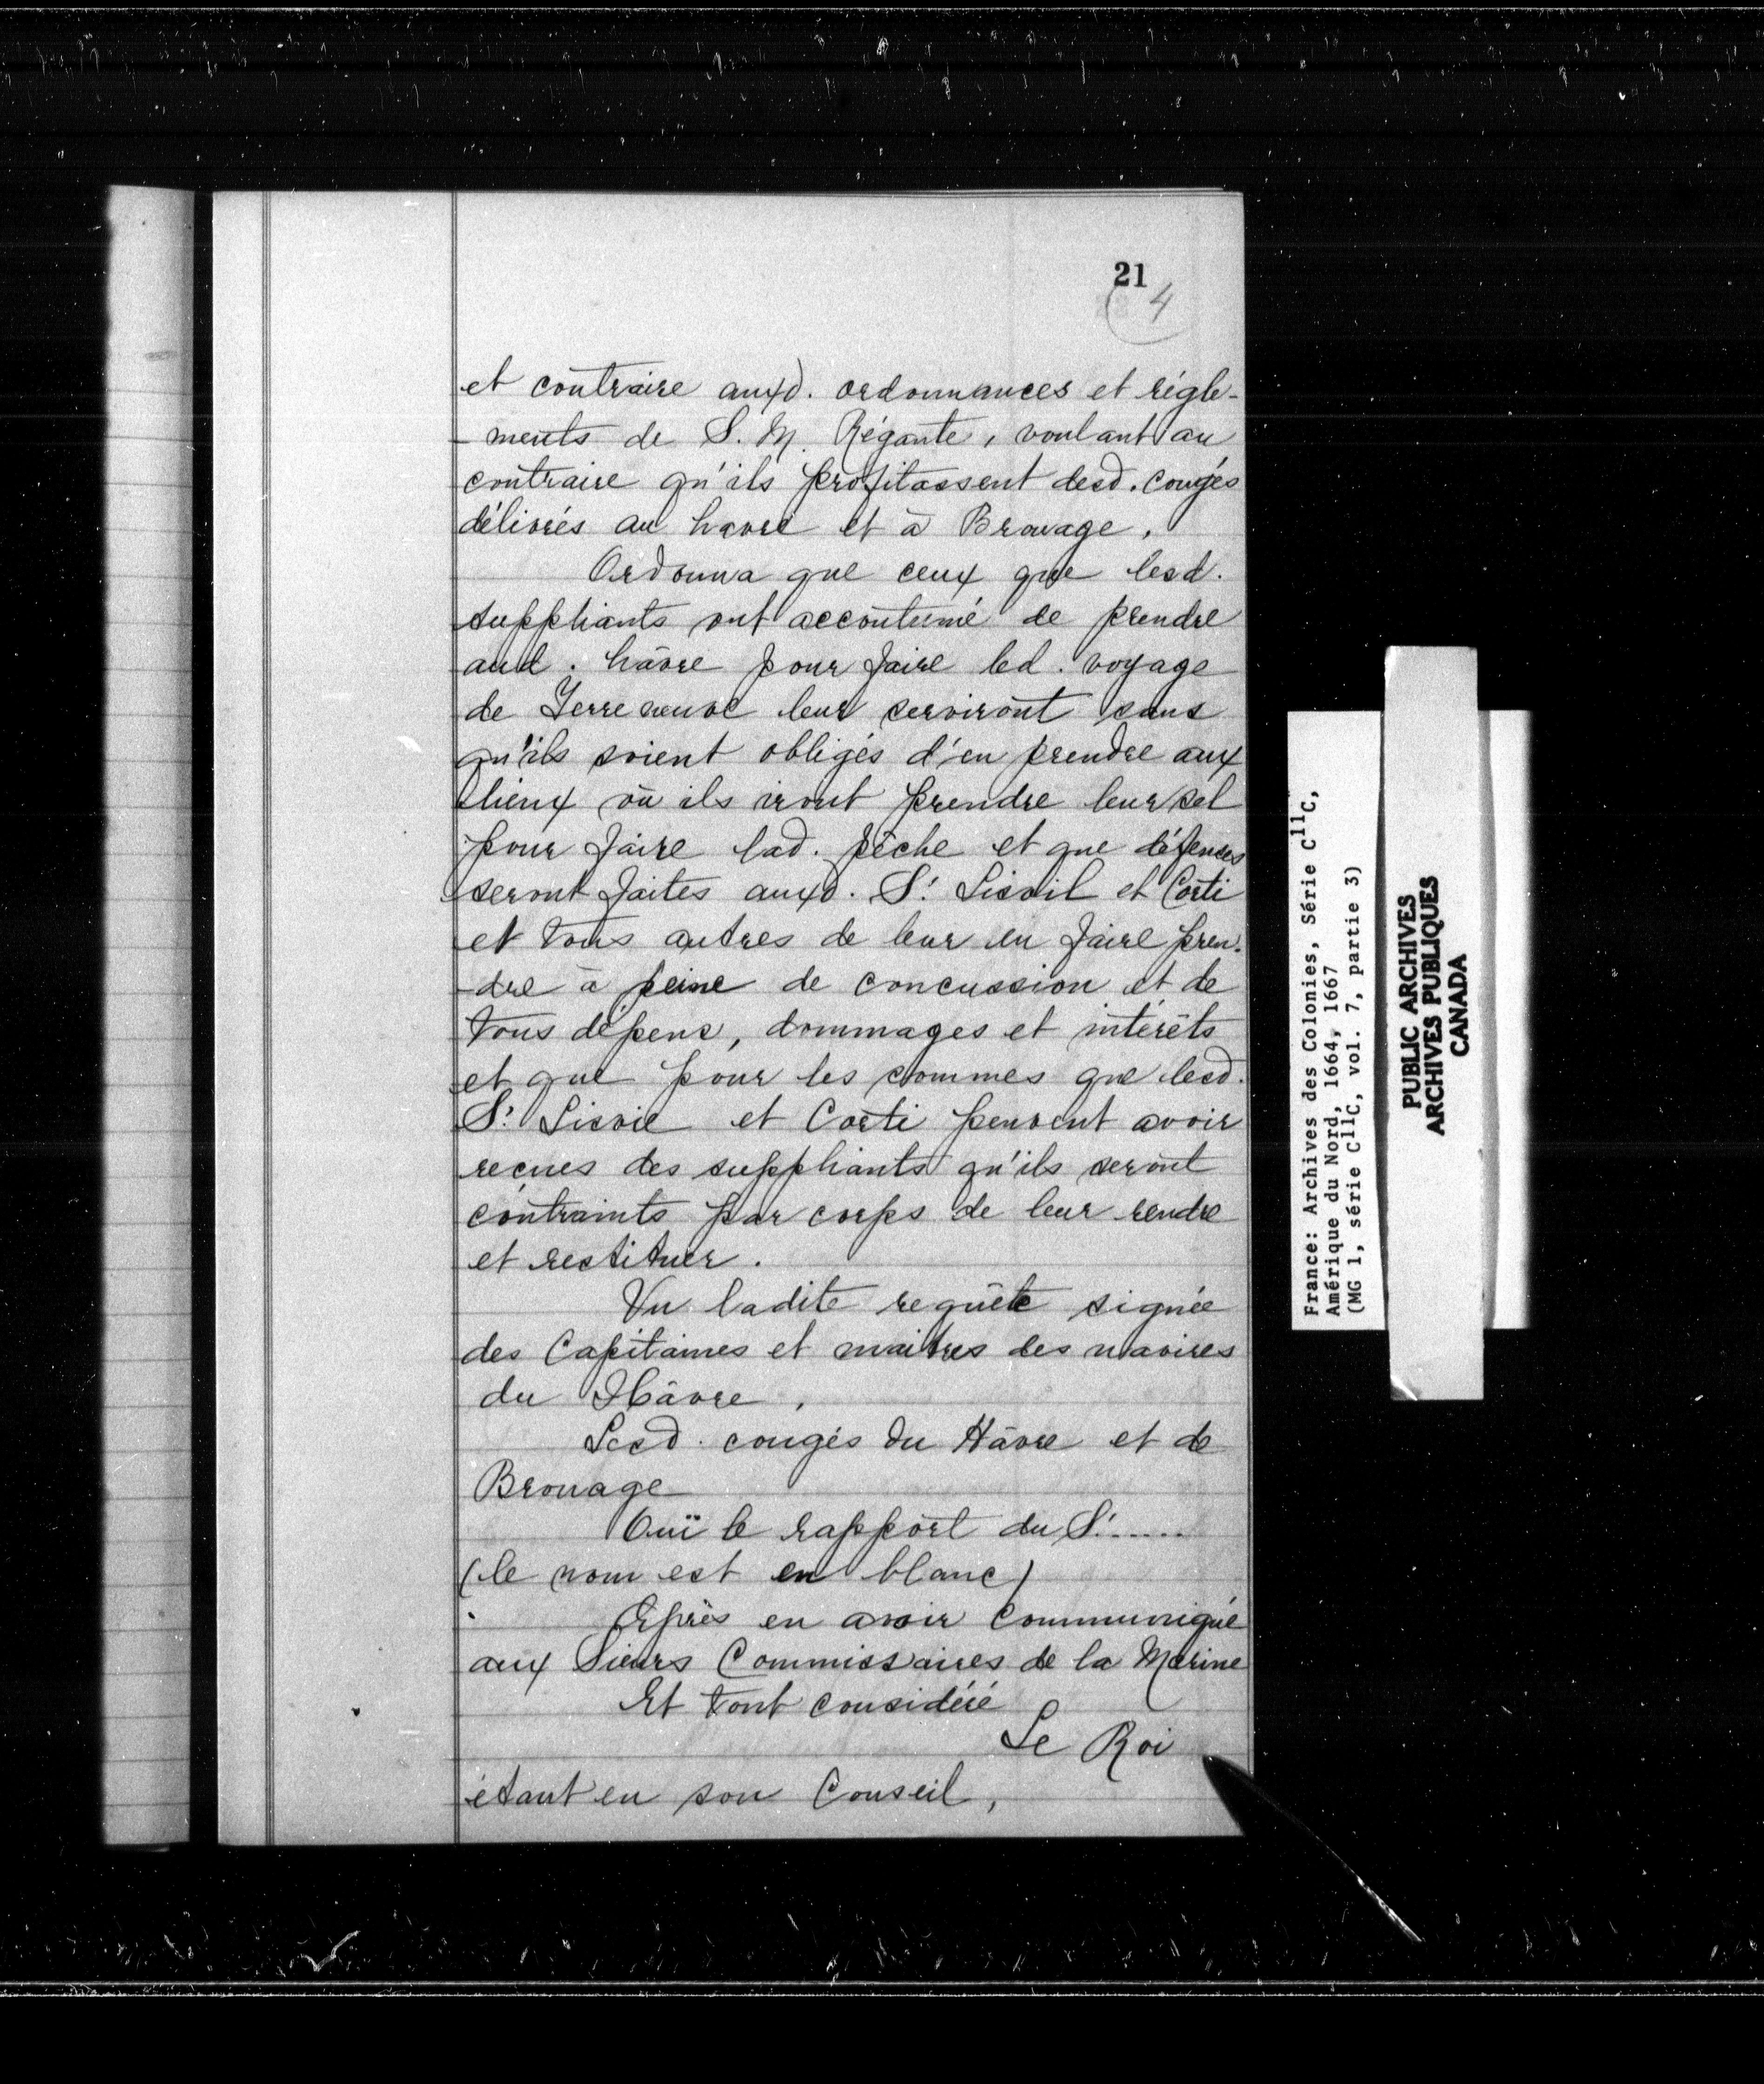 21
4
et contraire auxd. ordonnances et régle-
-ments de S. M. Régante, voulant au
contraire qu'ils profitassent desd. congés
délivrés au havre et à Brouage,
Ordonna que ceux que lesd.
suppliants ont accoutumé de prendre
aud. hâvre pour faire led. voyage
de Terre neuve leur serviront sans
qu'ils soient obligés d'en prendre aux
lieux où ils iront prendre leur sel
pour faire lad. pêche et que défenses
seront faites auxd. Sr. Lisvil et Corti
et tous autres de leur en faire pren-
-dre à peine de concussion et de
tous dépens, dommages et intérêts
et que pour les sommes que lesd.
Sr. Lisvie et Corti peuvent avoir
reçues des suppliants qu'ils seront
contraints par corps de leur rendre
et restituer.
Vu ladite requête signée
des Capitaines et maitres des navires
du Hâvre,
Lesd. congés du Hâvre et de
Brouage
Ouï le rapport du Sr......
(le nom est en blanc)
Après en avoir communiqué
aux Sieurs Commissaires de la Marine
Et tout considéré
Le Roi
étant en son Conseil,
France: Archives des Colonies, Série C11C,
Amérique du Nord, 1664, 1667
(MG 1, série C11C, vol. 7, partie 3)
PUBLIC ARCHIVES
ARCHIVES PUBLIQUES
CANADA